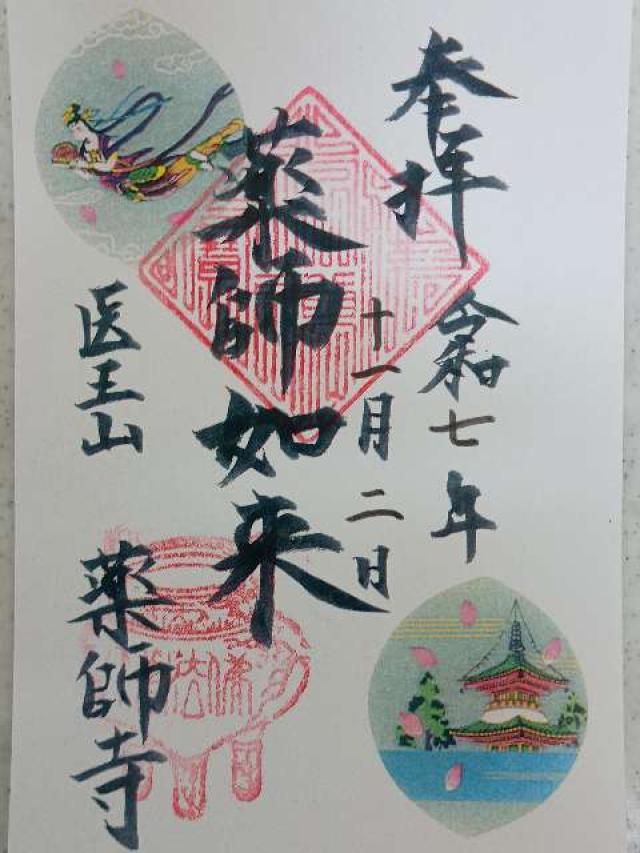 奉拝
令和七年
十一月二日
薬師如来
医王山
薬師寺